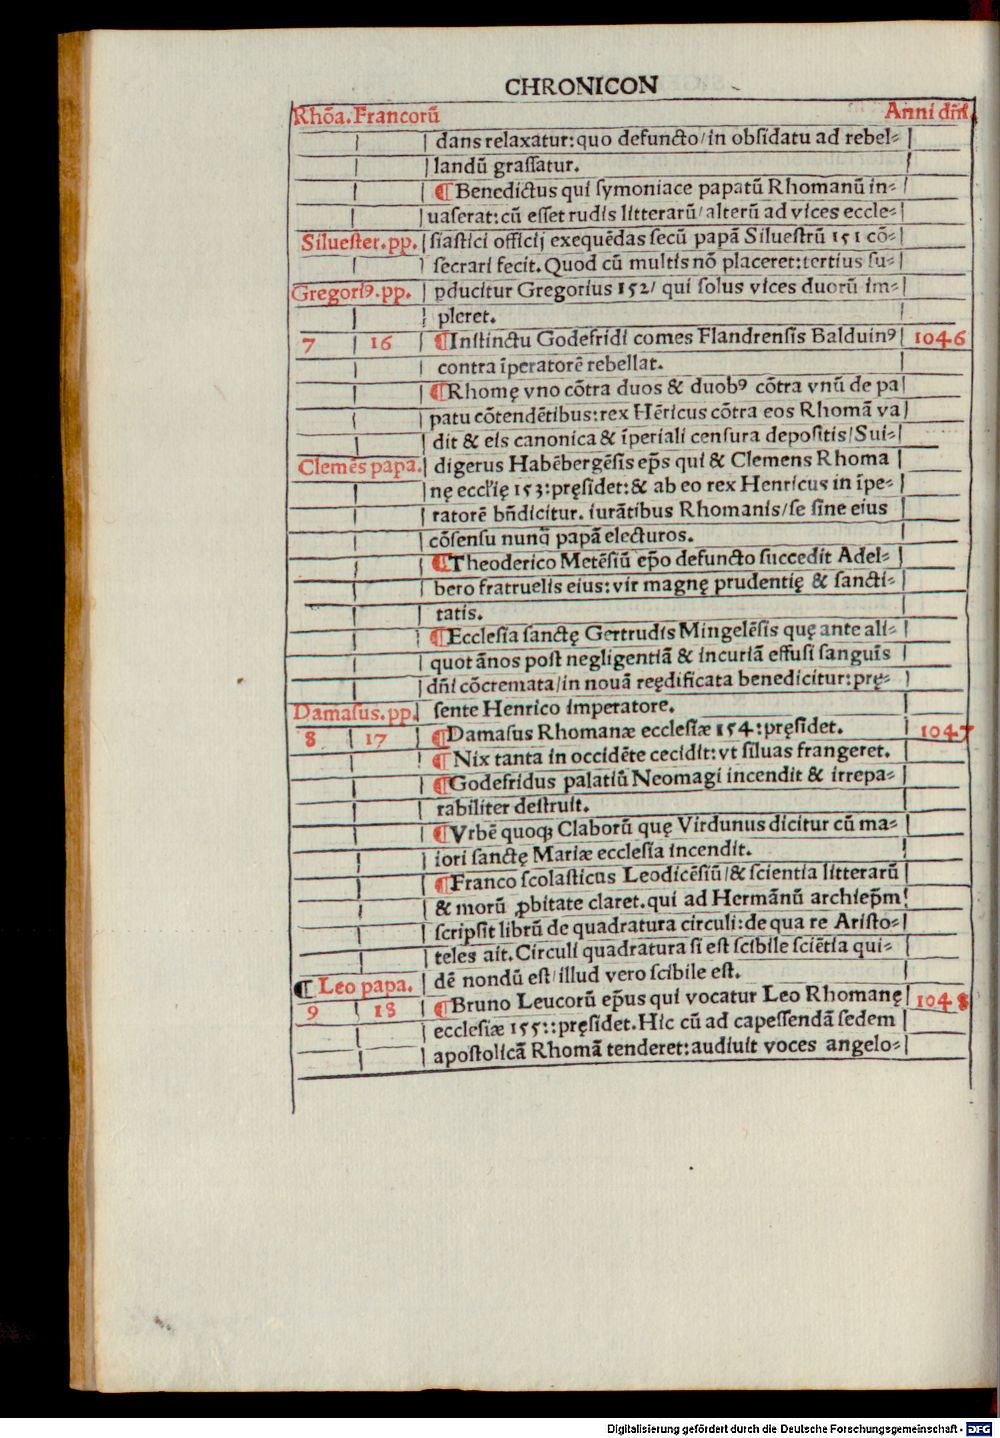 CHRONICON
Rhõa. Francorũ Anni dñi.
dans relaxatur: quo defuncto/in obsidatu ad rebel-
landũ grassatur.
¶ Benedictus qui symoniace papatũ Rhomanũ in-
uaserat: cũ esset rudis litterarũ/alterũ ad vices eccle-
Siluester. pp. siastici officij exequẽdas secũ papã Siluestrũ 151 cõ-
secrari fecit. Quod cũ multis nõ placeret: tertius su-
Gregoriꝰ. pp. ꝓducitur Gregorius 152/ qui solus vices duorũ im-
pleret.
7 16 ¶ Instinctu Godefridi comes Flandrensis Balduinꝰ 1046
contra ĩperatorẽ rebellat.
¶ Rhomę vno cõtra duos & duobꝰ cõtra vnũ de pa
patu cõtendẽtibus: rex Hẽricus cõtra eos Rhomã va
dit & eis canonica & ĩperiali censura depositis/Sui-
Clemẽs papa. digerus Habẽbergẽsis ep̃s qui & Clemens Rhoma
nę eccl'ię 153: pręsidet: & ab eo rex Henricus in ĩpe-
ratorẽ bñdicitur. iurãtibus Rhomanis/se sine eius
cõsensu nunq̃ papã electuros.
¶ Theoderico Metẽsiũ ep̃o defuncto succedit Adel-
bero fratruelis eius: vir magnę prudentię & sancti-
tatis.
¶ Ecclesia sanctę Gertrudis Mingelẽsis quę ante ali-
quot ãnos post negligentiã & incuriã effusi sanguĩs
dñi cõcremata/in nouã reędificata benedicitur: prę-
Damasus. pp. sente Henrico imperatore.
8 17 ¶ Damasus Rhomanæ ecclesiæ 154: pręsidet. 1047
¶ Nix tanta in occidẽte cecidit: vt siluas frangeret.
¶ Godefridus palatiũ Neomagi incendit & irrepa-
rabiliter destruit.
¶ Vrbẽ quoqꝫ Claborũ quę Virdunus dicitur cũ ma-
iori sanctę Mariæ ecclesia incendit.
¶ Franco scolasticus Leodicẽsiũ/& scientia litterarũ
& morũ ꝓbitate claret. qui ad Hermãnũ archiep̃m
scripsit librũ de quadratura circuli: de qua re Aristo-
teles ait. Circuli quadratura si est scibile sciẽtia qui-
¶ Leo papa. dẽ nondũ est/illud vero scibile est.
9 18 ¶ Bruno Leucorũ ep̃us qui vocatur Leo Rhomanę 1048
ecclesiæ 155:: pręsidet. Hic cũ ad capessendã sedem
apostolicã Rhomã tenderet: audiuit voces angelo-
Digitalisierung gefördert durch die Deutsche Forschungsgemeinschaft - DFG